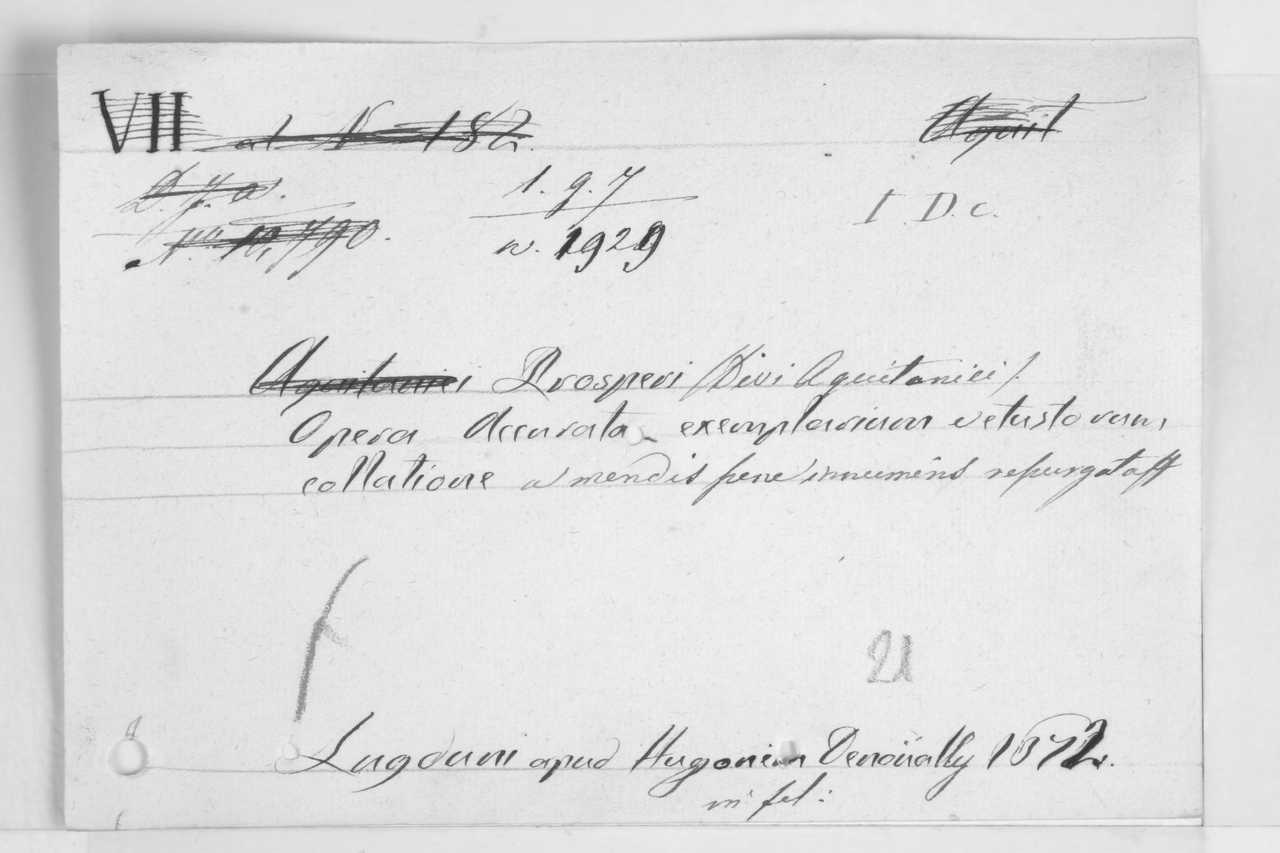 VII ad N 182. Aquit
D. j. a. 1. g. 7 I D. c.
No 12,790. n. 1929
Aquitanici Prosperi (Divi Aquitanici).
Opera accurata exemplarium vetustorum,
collatione a mendis pene innumeris repurgata
21
Lugduni apud Hugonem Denoually
in fol: